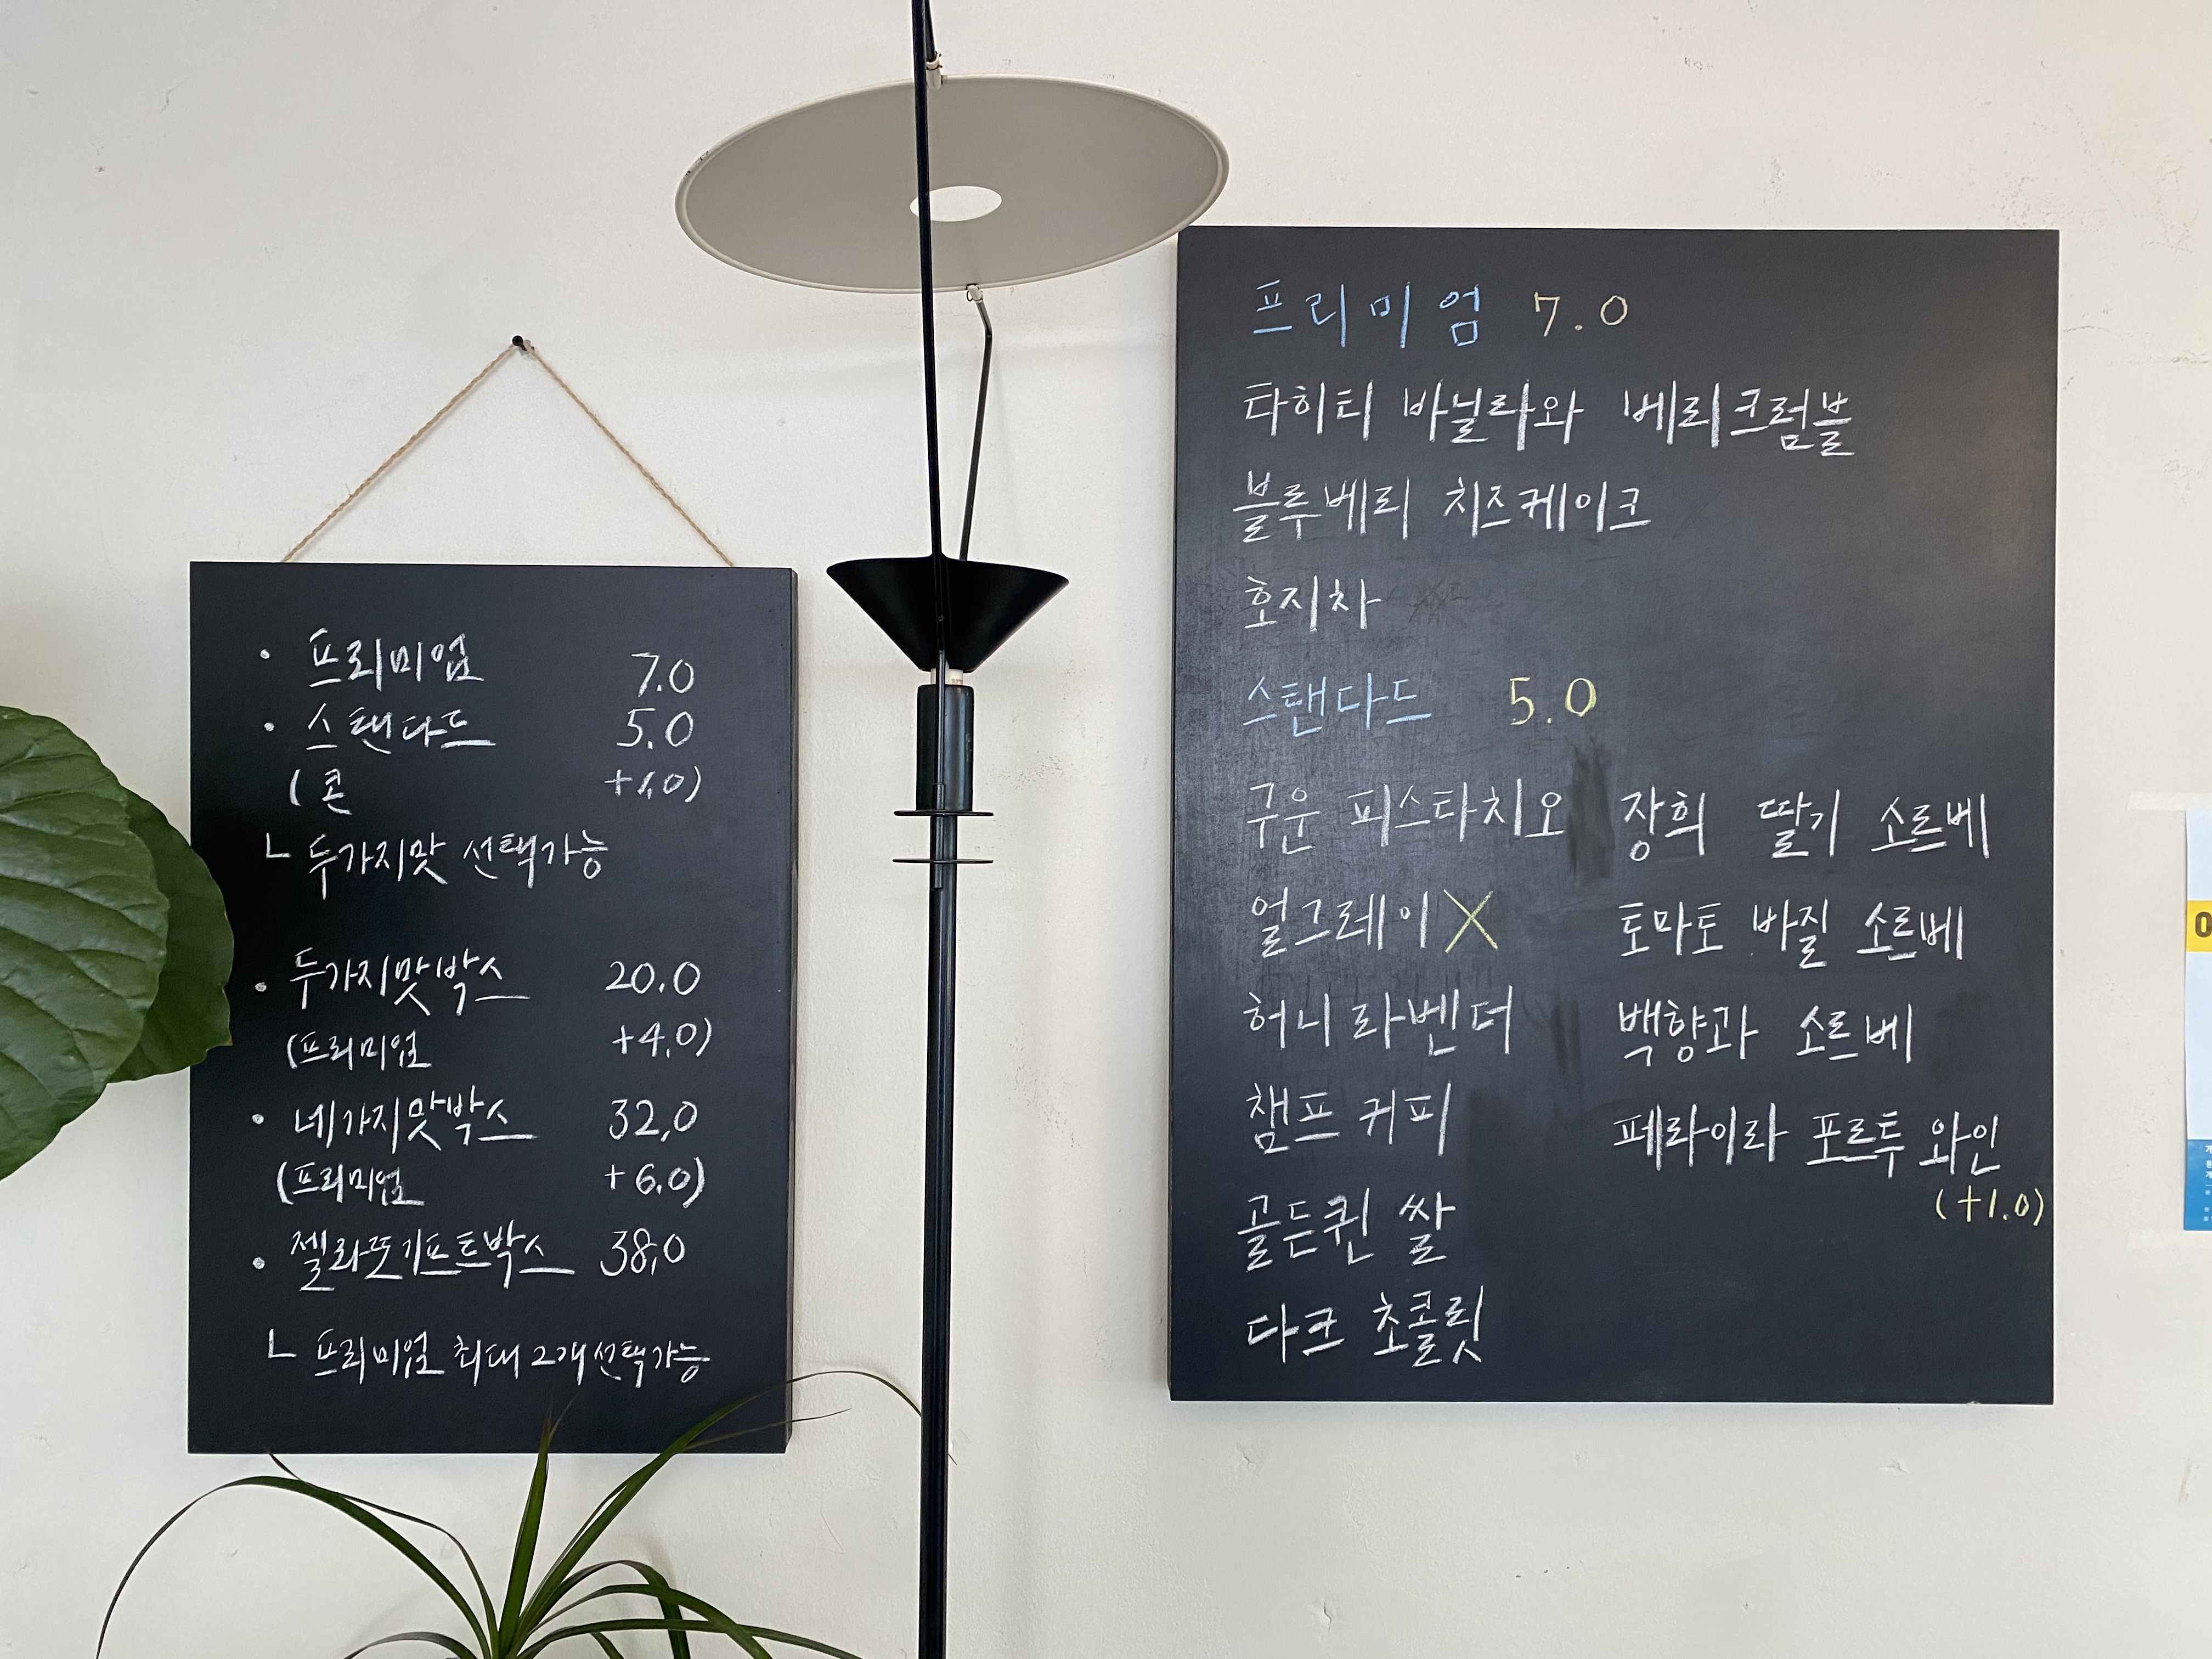 • 프리미엄 7.0
• 스탠다드 5.0
(콘 +1.0)
ㄴ 두가지맛 선택가능
• 두가지맛박스 20.0
(프리미엄 +4.0)
• 네가지맛박스 32.0
(프리미엄 +6.0)
• 젤라또기프트박스 38.0
ㄴ 프리미엄 최대 2개 선택가능
프리미엄 7.0
타히티 바닐라와 베리크럼블
블루베리 치즈케이크
호지차
스탠다드 5.0
구운 피스타치오
얼그레이 X
허니 라벤더
챔프 커피
골든퀸 쌀
다크 초콜릿
장희 딸기 소르베
토마토 바질 소르베
백향과 소르베
페라이라 포르투 와인
(+1.0)